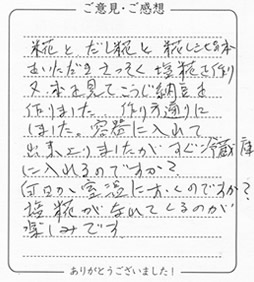 ご意見・ご感想
糀とだし糀と糀レシピの本
をいただきさっそく塩糀を作り
又本を見てこうじ納豆を
作りました。作り方通りに
しました。容器に入れて
出来上りましたがすぐ冷蔵庫
に入れるのですか?
何日か室温におくのですか?
塩糀が出来てくるのが
楽しみです
ありがとうございました!